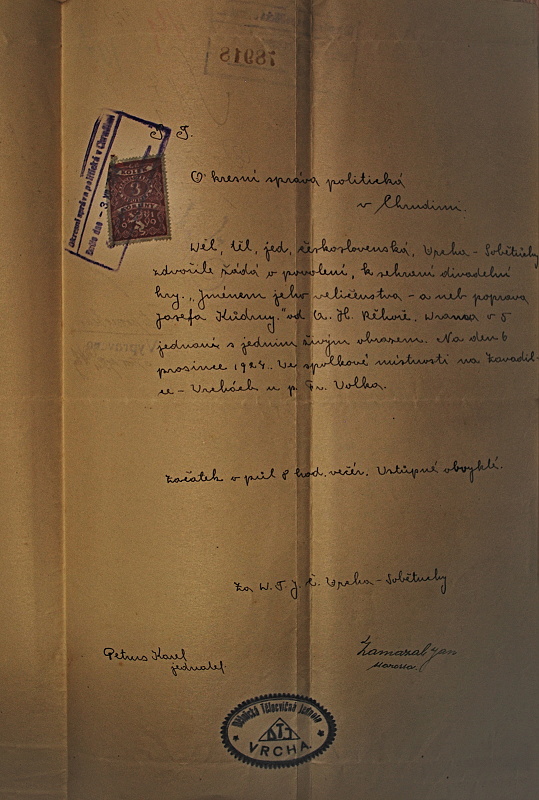 78918
P. T.
Okresní správa politická
v Chrudimi.
Okresní správa politická v Chrudimi
Došlo dne - 3
KOLEK
3
KORUNY
Děl. těl. jed. československá, Vrcha - Sobětuchy
zdvořile žádá o povolení, k sehrání divadelní
hry. „Jménem jeho veličenstva - a neb poprava
Josefa Kudrny." od A. H. v 5
jednání s jedním živým obrazem. Na den 6
prosince 1924. Ve spolkové místnosti na Zavadil-
ce - Vrchách u p. Fr. Volka.
Začátek o půl 8 hod. večer. Vstupné obvyklé.
Za D. T. J. Č. Vrcha - Sobětuchy
Petrus Karel
jednatel.
Zamazal Jan
Dělnická Tělocvičná Jednota
DTJ
VRCHA.